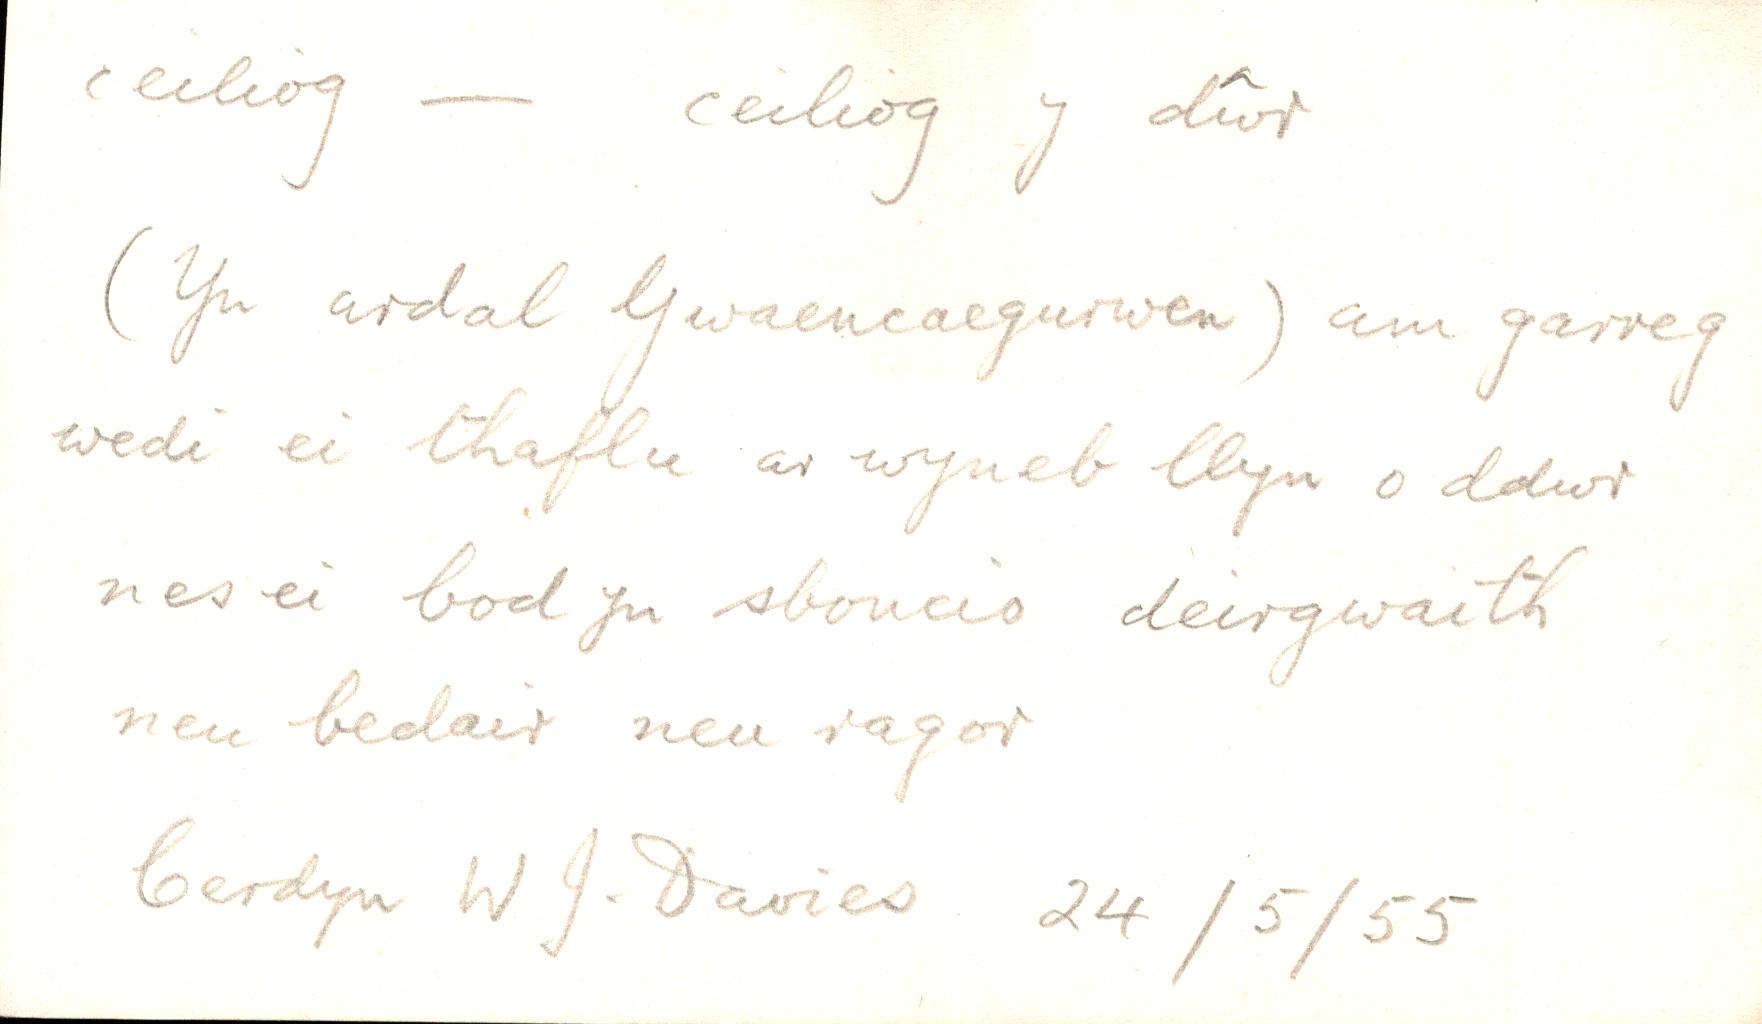 ceiliog — ceiliog y dŵr
(Yn ardal Gwaencaegurwen) am garreg
wedi ei thaflu ar wyneb llyn o ddwr
nes ei bod yn sboncio deirgwaith
neu bedair neu ragor
Cerdyn W J. Davies 24/5/55